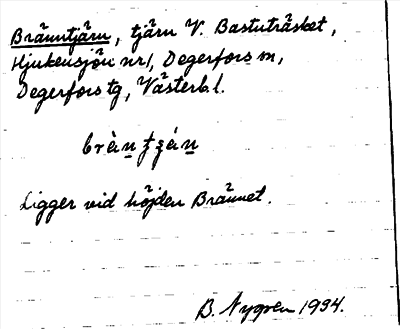 Bränntjärn, tjärn V. Bastuträsket,
Hjukensjön nr 1, Degerfors sn,
Degerfors tg, Västerb. l.
Ligger vid höjden Brännet.
B. Nygren 1934.